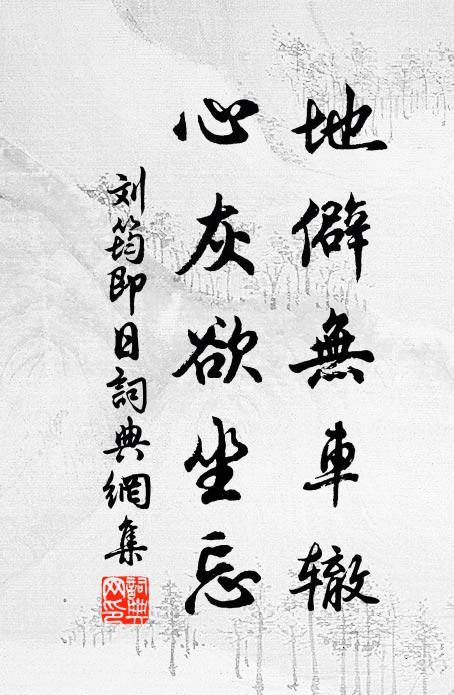 地僻無車辙
心灰欲坐忘
刘筠即日詞典網集
詞典网印